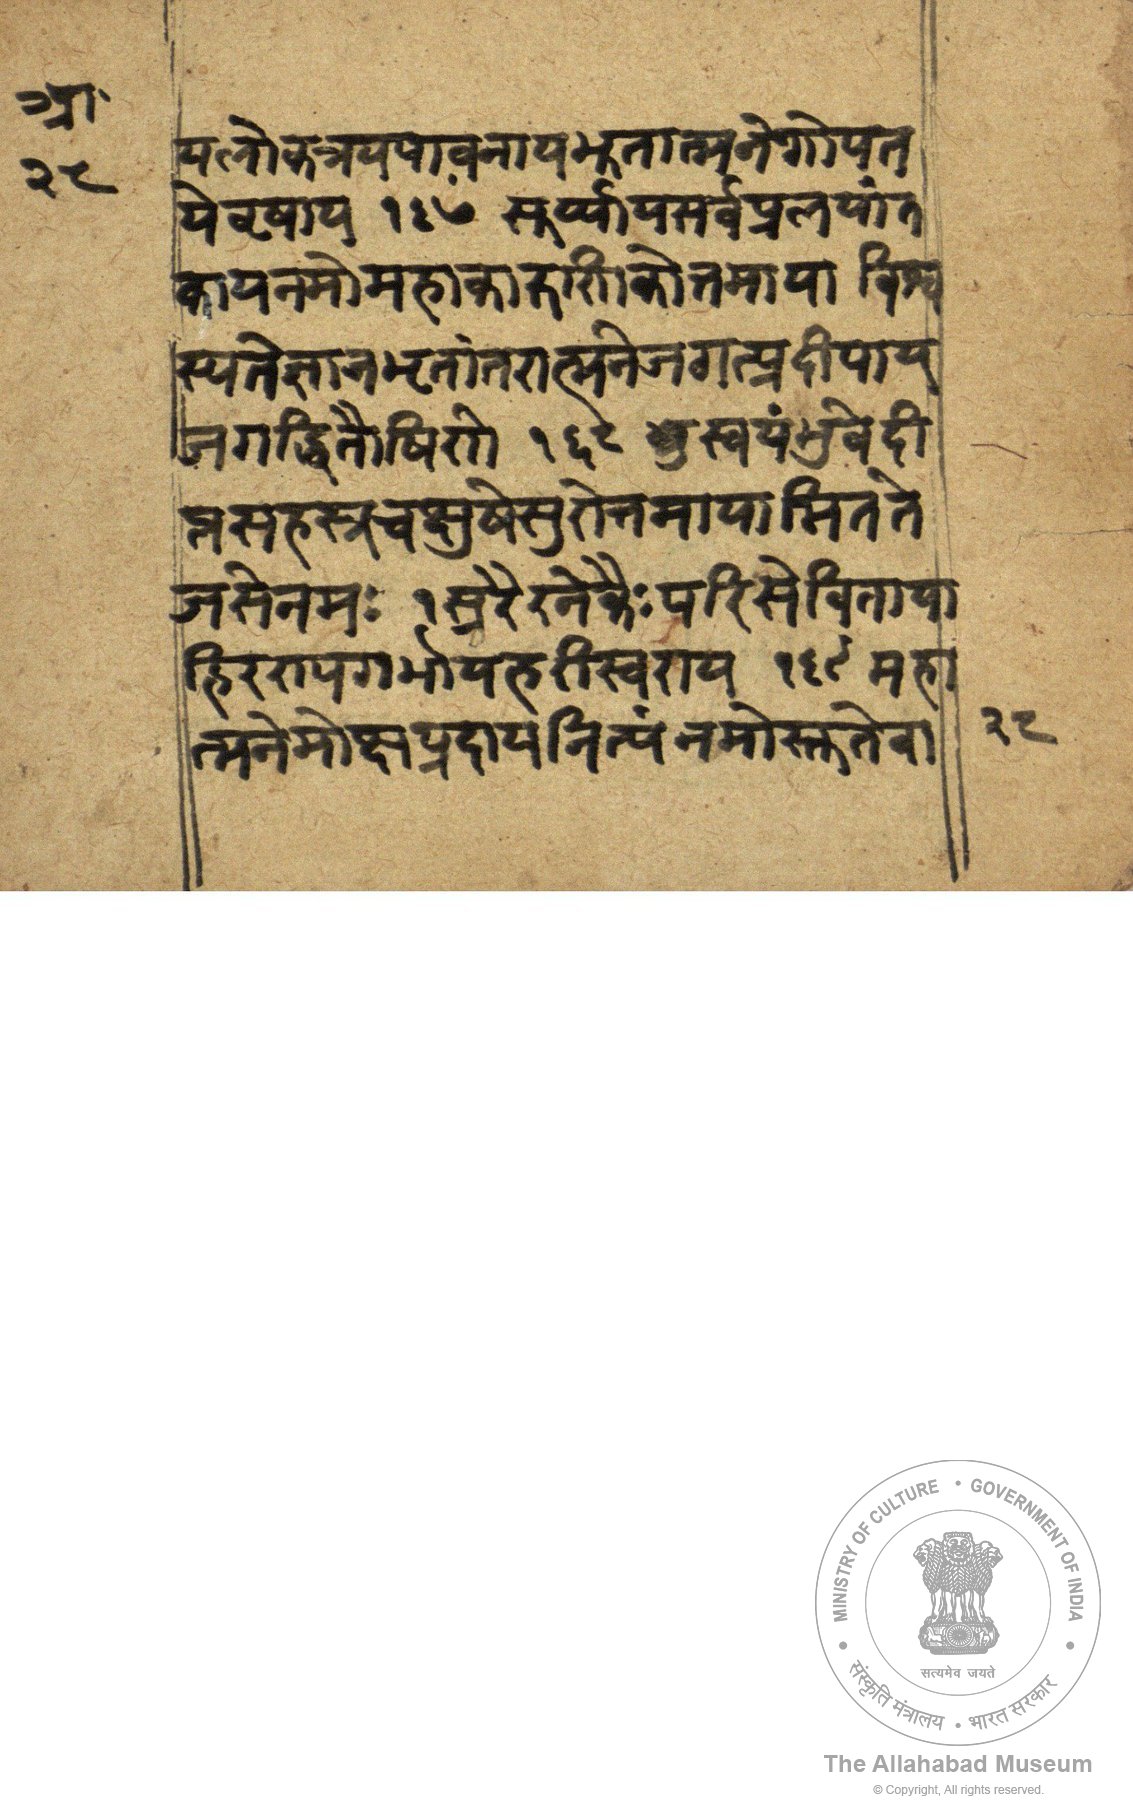 आ॰
२८
यलोकत्रयपावनायभूतात्मनेगोपत
येवृषाय १६७ सूर्य्यायसर्वप्रलयांत
कायनमोमहाकारुणिकोत्तमाया विव
स्वतेज्ञानभृतांतरात्मनेजगत्प्रदीपाय
जगद्धितैषिणे १६८ स्वयंभुवेदी
प्तसहस्त्रचक्षुषेसुरोत्तमायामितते
जसेनमः १ सुरैरनेकैःपरिसेविताया
हिरण्यगर्भायहरीस्वराय १६९ महा
त्मनेमोक्षप्रदायनित्यंनमोस्तुतेवा
२८
MINISTRY OF CULTURE • GOVERNMENT OF INDIA
सत्यमेव जयते
संस्कृति मंत्रालय • भारत सरकार
The Allahabad Museum
© Copyright, All rights reserved.